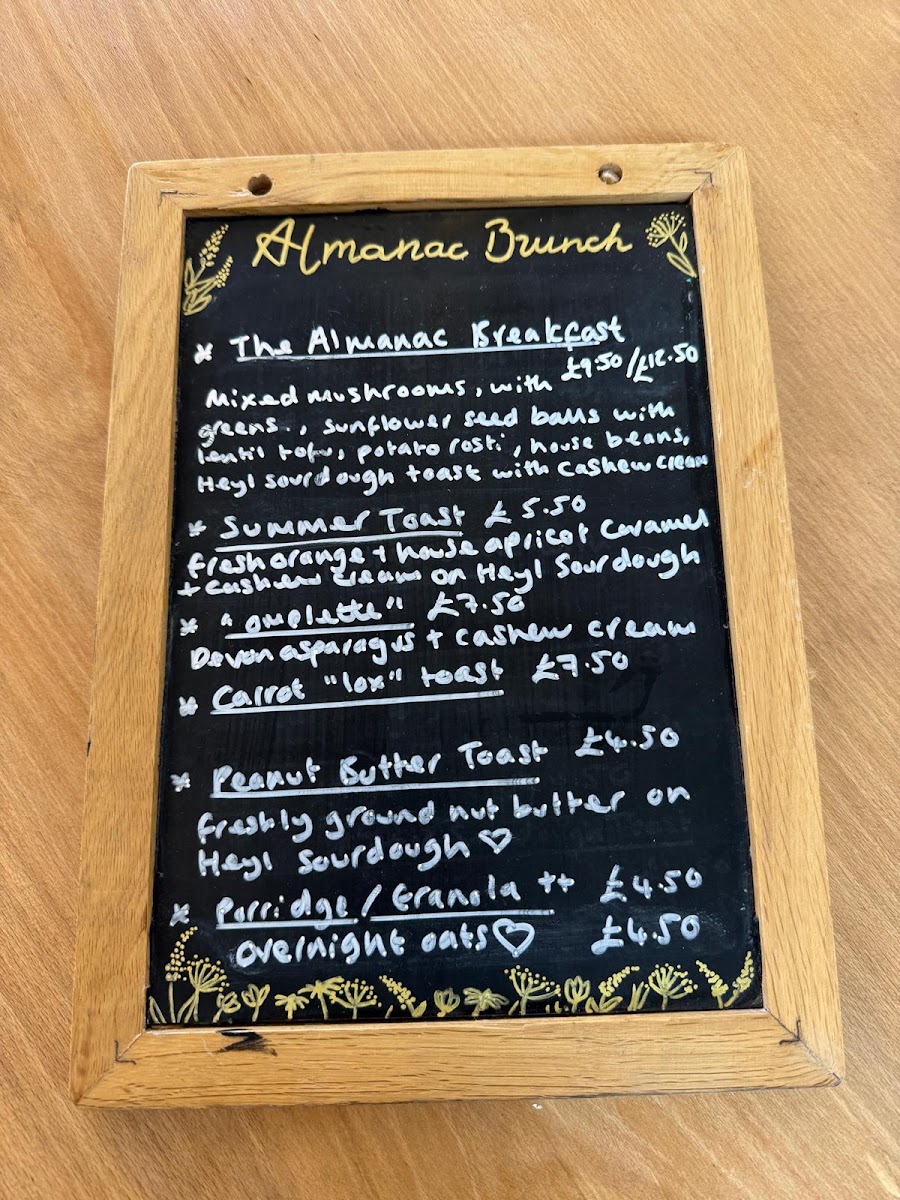 Almanac Brunch
* The Almanac Breakfast
£9.50/£12.50
Mixed mushrooms, with
greens., sunflower seed balls with
lentil tofu, potato rosti, house beans,
Heyl sourdough toast with cashew cream
* Summer Toast £5.50
fresh orange + house apricot caramel
+ cashew cream on Heyl Sourdough
* "omplette" £7.50
Devon asparagus + cashew cream
* Carrot "lox" toast £7.50
* Peanut Butter Toast £4.50
freshly ground nut butter on
Heyl Sourdough ♡
* Porridge / Granola ++ £4.50
overnight oats ♡ £4.50